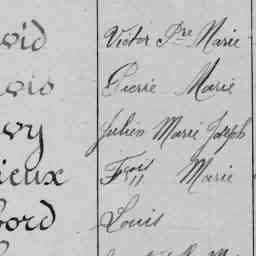 vid Victor Pre Marie
vis Pierre Marie
vy Julien Marie Joseph
ieux Frois Marie
bord Louis